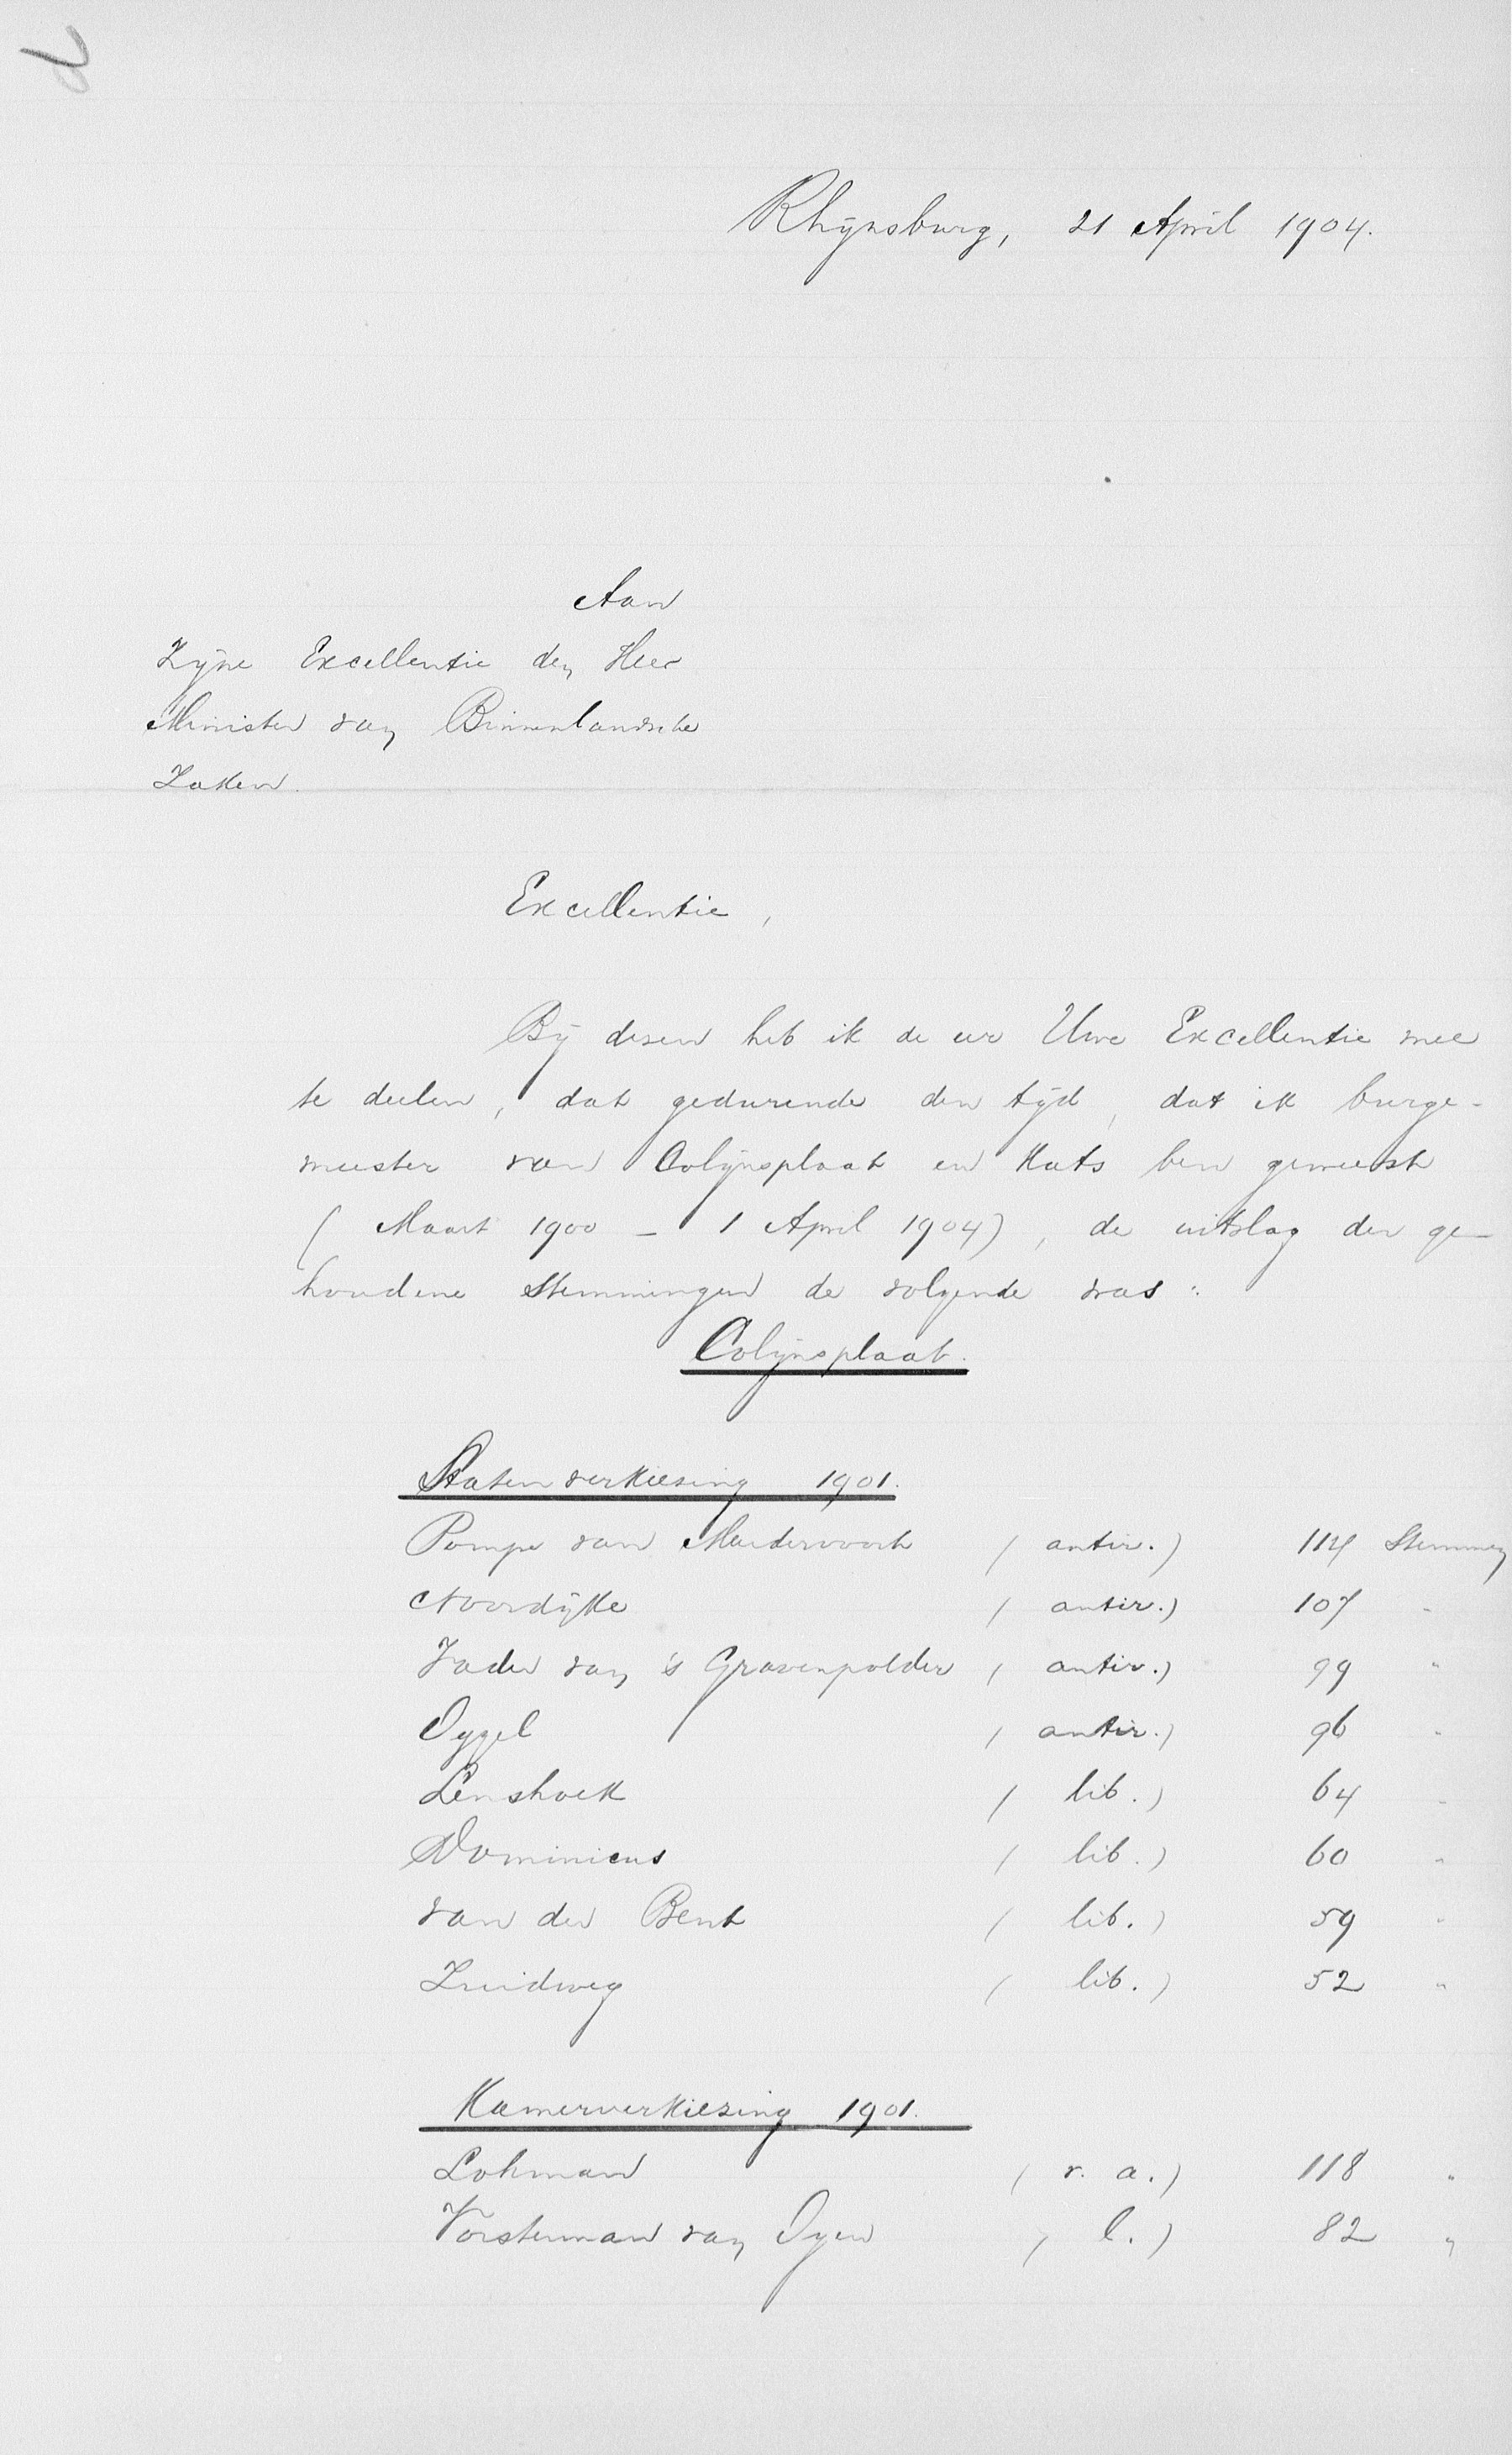 d
Rhijnsburg, 21 April 1904.
Aan
Zijne Excellentie den Heer
Minister van Binnenlandsche
Zaken.
Excellentie,
Bij dezen heb ik de eer Uwe Excellentie mee
te deelen, dat gedurende den tijd, dat ik burge-
meester van Colijnsplaat en Kats ben geweest
(Maart 1900 - 1 April 1904), de uitslag der ge-
houdene stemmingen de volgende was:
Colijnsplaat.
Statenverkiezing 1901.
Pompe van Meerdervoort (antir.) 114 Stemmen
Noordijke (antir.) 107 "
Vader van 's Gravenpolder (antir.) 99 "
Oggel (antir.) 96 "
Lenshoek (lib.) 64 "
Dominicus (lib.) 60 "
van der Bent (lib.) 59 "
Zuidweg (lib.) 52 "
Kamerverkiezing 1901.
Lohman (v. a.) 118 "
Vorsterman van Oyen (l.) 82 "